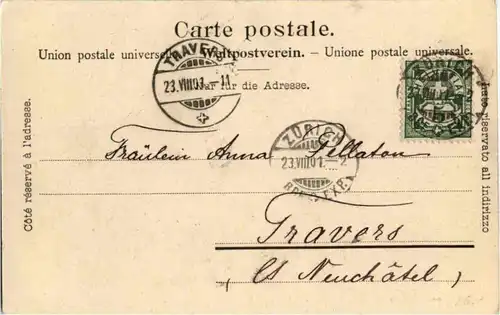 Carte postale.
Union postale universelle. – Weltpostverein. – Unione postale universale.
Nur für die Adresse.
TRAVERS
23.VIII01.–11
ZÜRICH
23.VIII01.–2
EXP.
Côté réservé à l'adresse.
Lato riservato all indirizzo
Fräulein Anna Pellaton
Travers
Ct Neuchâtel